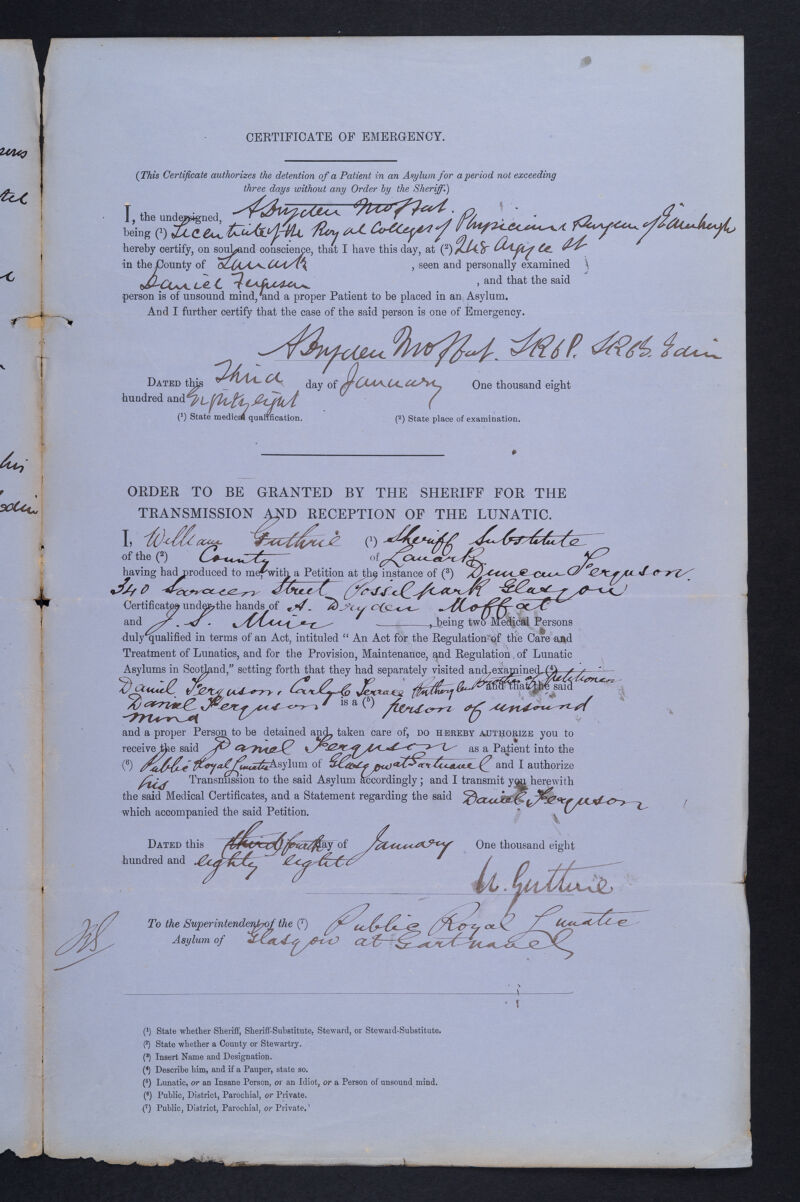 CERTIFICATE OF EMERGENCY.
(This Certificate authorizes the detention of a Patient in an Asylum for a period not exceeding
three days without any Order by the Sheriff.)
I, the undersigned, A Dryden Moffat.
being (1) Licentiate of the Royal Colleges of Physicians & Surgeons of Edinburgh
hereby certify, on soul and conscience, that I have this day, at (2) 248 Argyle St
in the County of Lanark, seen and personally examined
Daniel Ferguson, and that the said
person is of unsound mind, and a proper Patient to be placed in an Asylum.
And I further certify that the case of the said person is one of Emergency.
A Dryden Moffat. LRCP. LRCS. Edin
DATED this Third day of January One thousand eight
hundred and Eighty eight
(1) State medical qualification. (2) State place of examination.
ORDER TO BE GRANTED BY THE SHERIFF FOR THE
TRANSMISSION AND RECEPTION OF THE LUNATIC.
I, William Guthrie (1) Sheriff Substitute
of the (2) County of Lanark
having had produced to me, with a Petition at the instance of (3) Duncan Ferguson.
340 Saracen Street Possilpark Glasgow
Certificates under the hands of A. Dryden Moffat
and J. S. Muir, being two Medical Persons
duly qualified in terms of an Act, intituled “An Act for the Regulation of the Care and
Treatment of Lunatics, and for the Provision, Maintenance, and Regulation of Lunatic
Asylums in Scotland,” setting forth that they had separately visited and examined (4)
Daniel Ferguson, Carlyle Terrace Rutherglen brother of petitioner and that the said
Daniel Ferguson is a (5) person of unsound
mind
and a proper Person to be detained and taken care of, DO HEREBY AUTHORIZE you to
receive the said Daniel Ferguson as a Patient into the
(6) Public Royal Lunatic Asylum of Glasgow at Gartnavel and I authorize
his Transmission to the said Asylum accordingly; and I transmit you herewith
the said Medical Certificates, and a Statement regarding the said Daniel Ferguson
which accompanied the said Petition.
DATED this (third) fourth day of January One thousand eight
hundred and eighty eight
W. Guthrie
To the Superintendent of the (7) Public Royal Lunatic
Asylum of Glasgow at Gartnavel
(1) State whether Sheriff, Sheriff-Substitute, Steward, or Steward-Substitute.
(2) State whether a County or Stewartry.
(3) Insert Name and Designation.
(4) Describe him, and if a Pauper, state so.
(5) Lunatic, or an Insane Person, or an Idiot, or a Person of unsound mind.
(6) Public, District, Parochial, or Private.
(7) Public, District, Parochial, or Private.